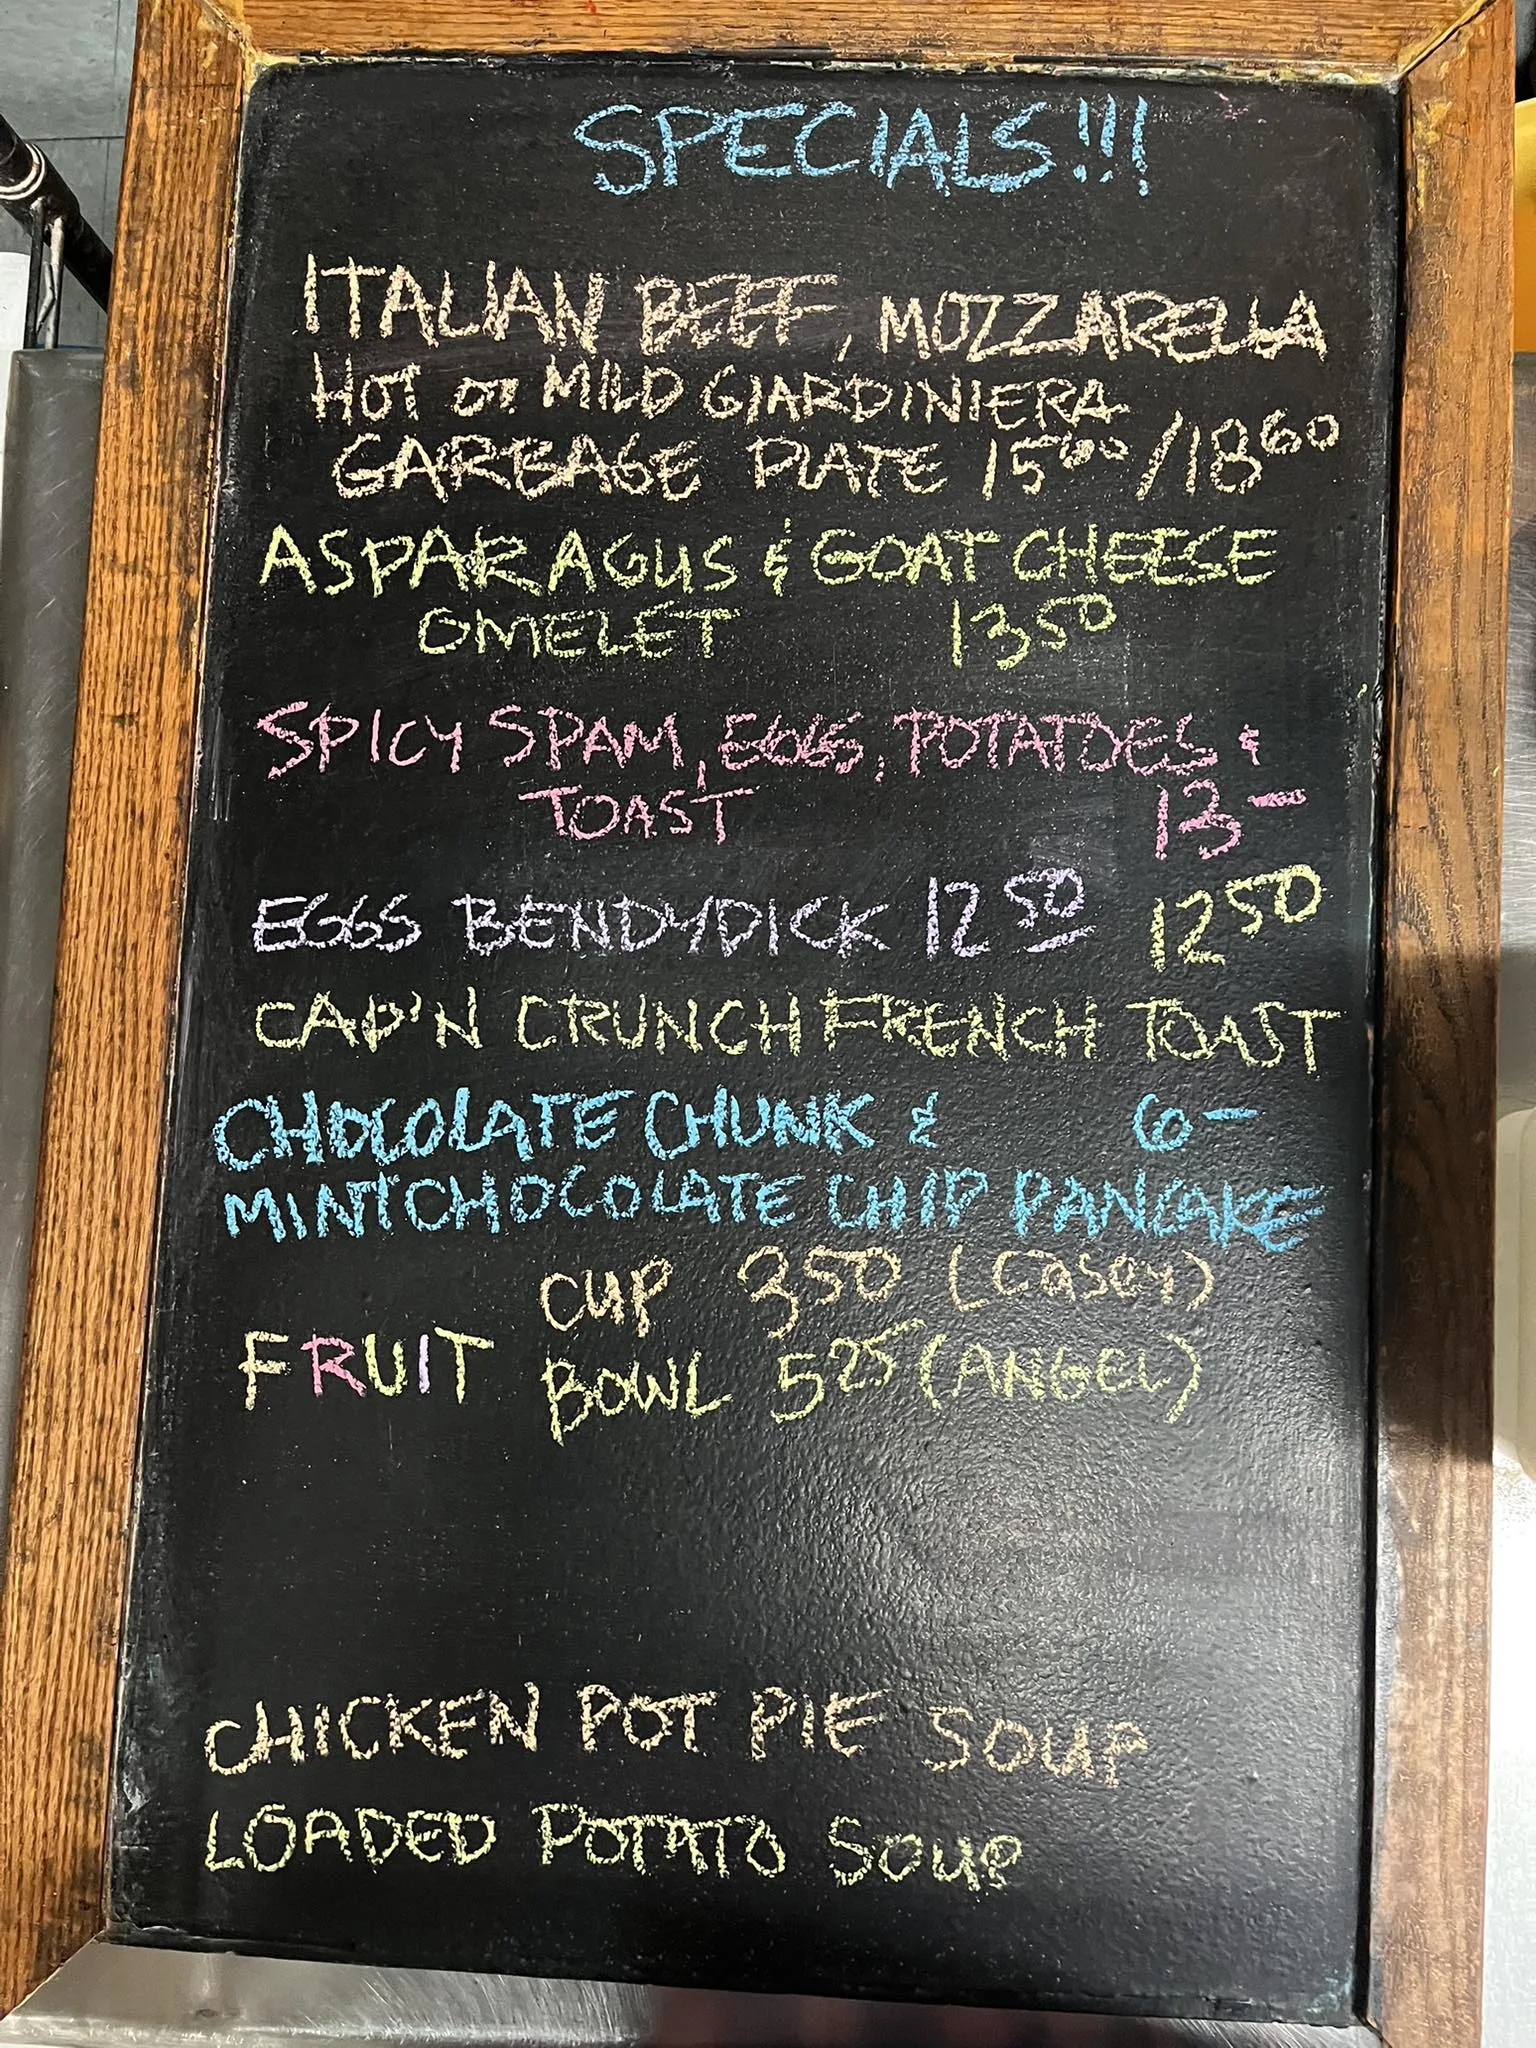 SPECIALS!!!
ITALIAN BEEF, MOZZARELLA
HOT OR MILD GIARDINIERA
GARBAGE PLATE 15⁶⁰/18⁶⁰
ASPARAGUS & GOAT CHEESE
OMELET 13⁵⁰
SPICY SPAM, EGGS, POTATOES &
TOAST 13-
EGGS BENDYDICK 12⁵⁰ 12⁵⁰
CAP'N CRUNCH FRENCH TOAST
CHOCOLATE CHUNK & 6-
MINT CHOCOLATE CHIP PANCAKE
CUP 3⁵⁰ (CASEY)
FRUIT BOWL 5²⁵ (ANGEL)
CHICKEN POT PIE SOUP
LOADED POTATO SOUP